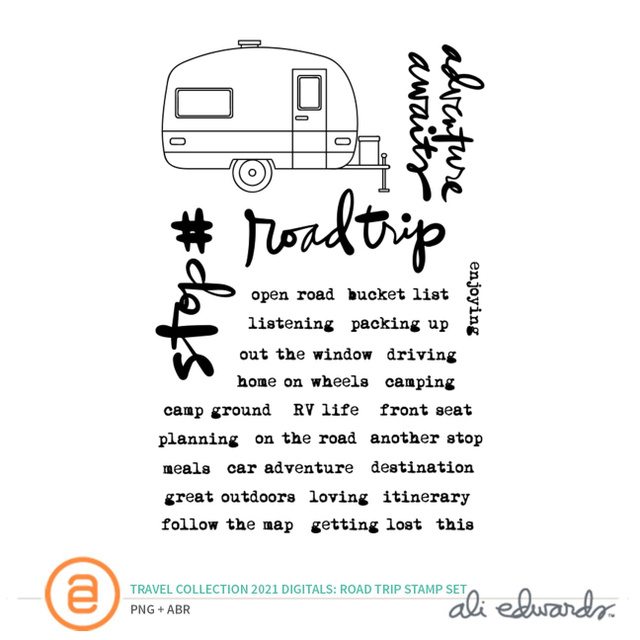 adventure
awaits
road trip
# of stops
enjoying
open road bucket list
listening packing up
out the window driving
home on wheels camping
camp ground RV life front seat
planning on the road another stop
meals car adventure destination
great outdoors loving itinerary
follow the map getting lost this
a
TRAVEL COLLECTION 2021 DIGITALS: ROAD TRIP STAMP SET
PNG + ABR
ali edwards